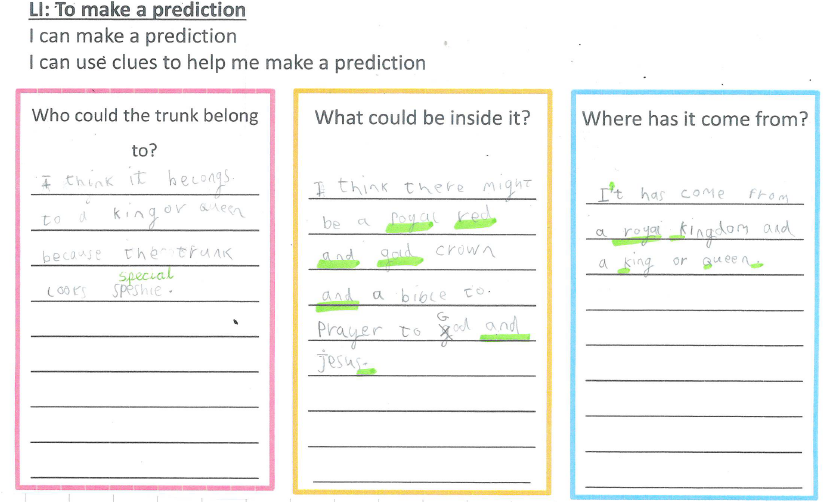 LI: To make a prediction
I can make a prediction
I can use clues to help me make a prediction
Who could the trunk belong
to?
I think it belongs.
to a king or queen
because the trunk
special
loors speshie.
What could be inside it?
I think there might
be a royal red
and gold crown
and a bible to.
Prayer to God and
jesus.
Where has it come from?
It has come from
a royal kingdom and
a king or queen.